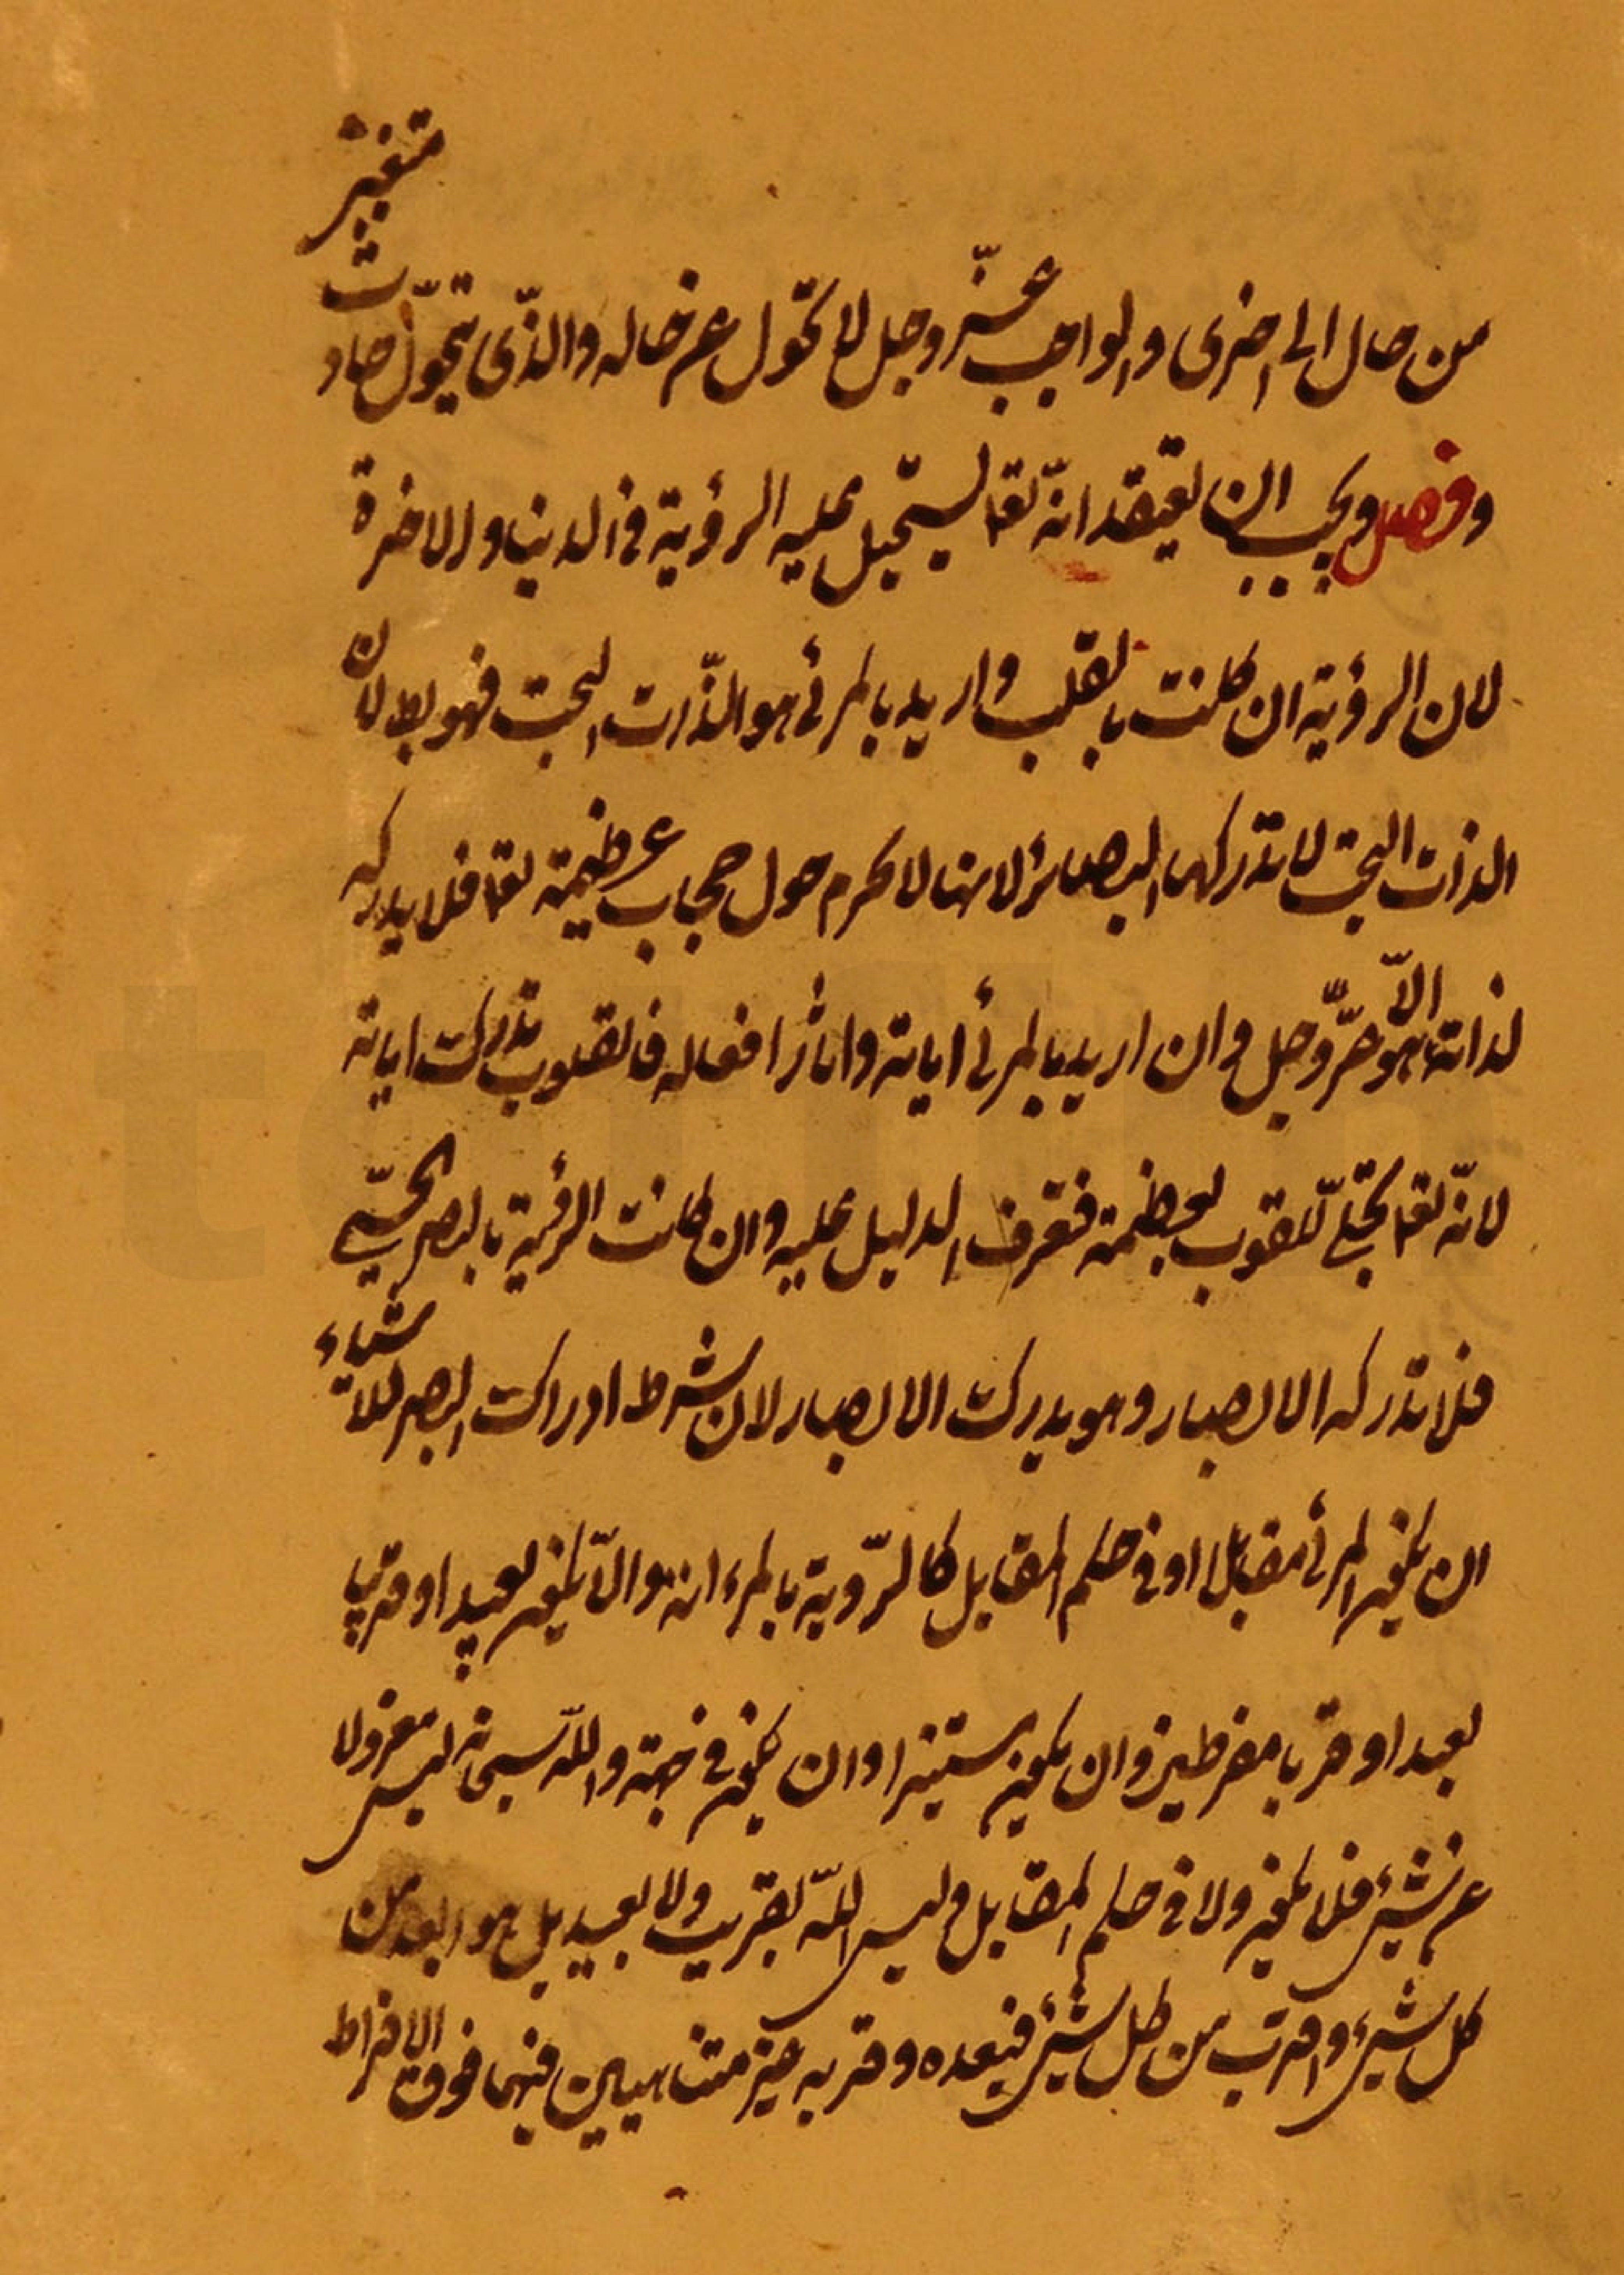 متغير
من حال الى اخرى والواجب عزّ وجل لا تحوّل عن حاله والذّى يتحوّل حادث
و فصل ويجب ان يعتقد انّه تعا يستحيل عليه الرؤية فى الدنيا والاخرة
لان الرؤية ان كانت بالقلب واريد بالمرئى هو الذّات البحت فهو بط لان
الذات البحت لا تدركها البصائر لانها لا تحوم حول حجاب عظمته تعا فلا يدركه
لذاته الّا هو عزّ وجل وان اريد بالمرئى اياته واثار افعاله فالقلوب تدرك اياته
لانّه تعا تجلّى للقلوب بعظمته فتعرف الدليل عليه وان كانت الرؤية بالبصر الحسّى
فلا تدركه الابصار وهو يدرك الابصار لان شرط ادراك البصر للاشياء
ان يكون المرئى مقابلا او فى حكم المقابل كالرّوية بالمراة والّا يكون بعيدا او قريبا
بعيدا او قربا مفرطين وان يكون مستنيرا وان يكون فى جهة والله سبحانه ليس معزولا
عن شيئ فلا يكون ولا فى حكم المقابل وليس اللّه بقريب ولا بعيد بل هو ابعد من
كل شيئ واقرب من كل شيئ فبعده وقربه غير متناهيين فهما فوق الافراط